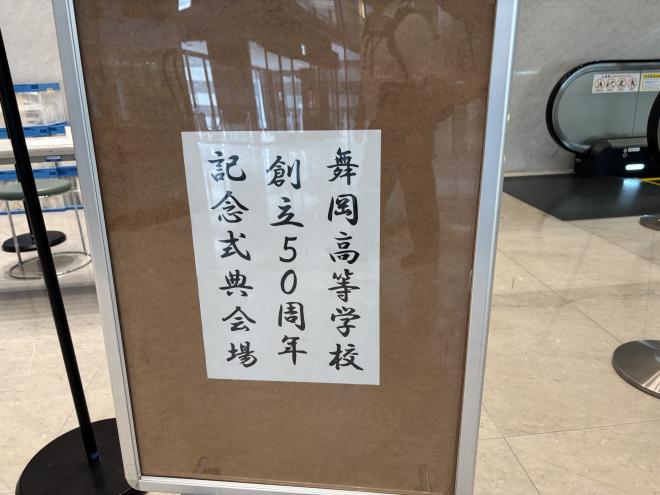 舞岡高等学校
創立50周年
記念式典会場